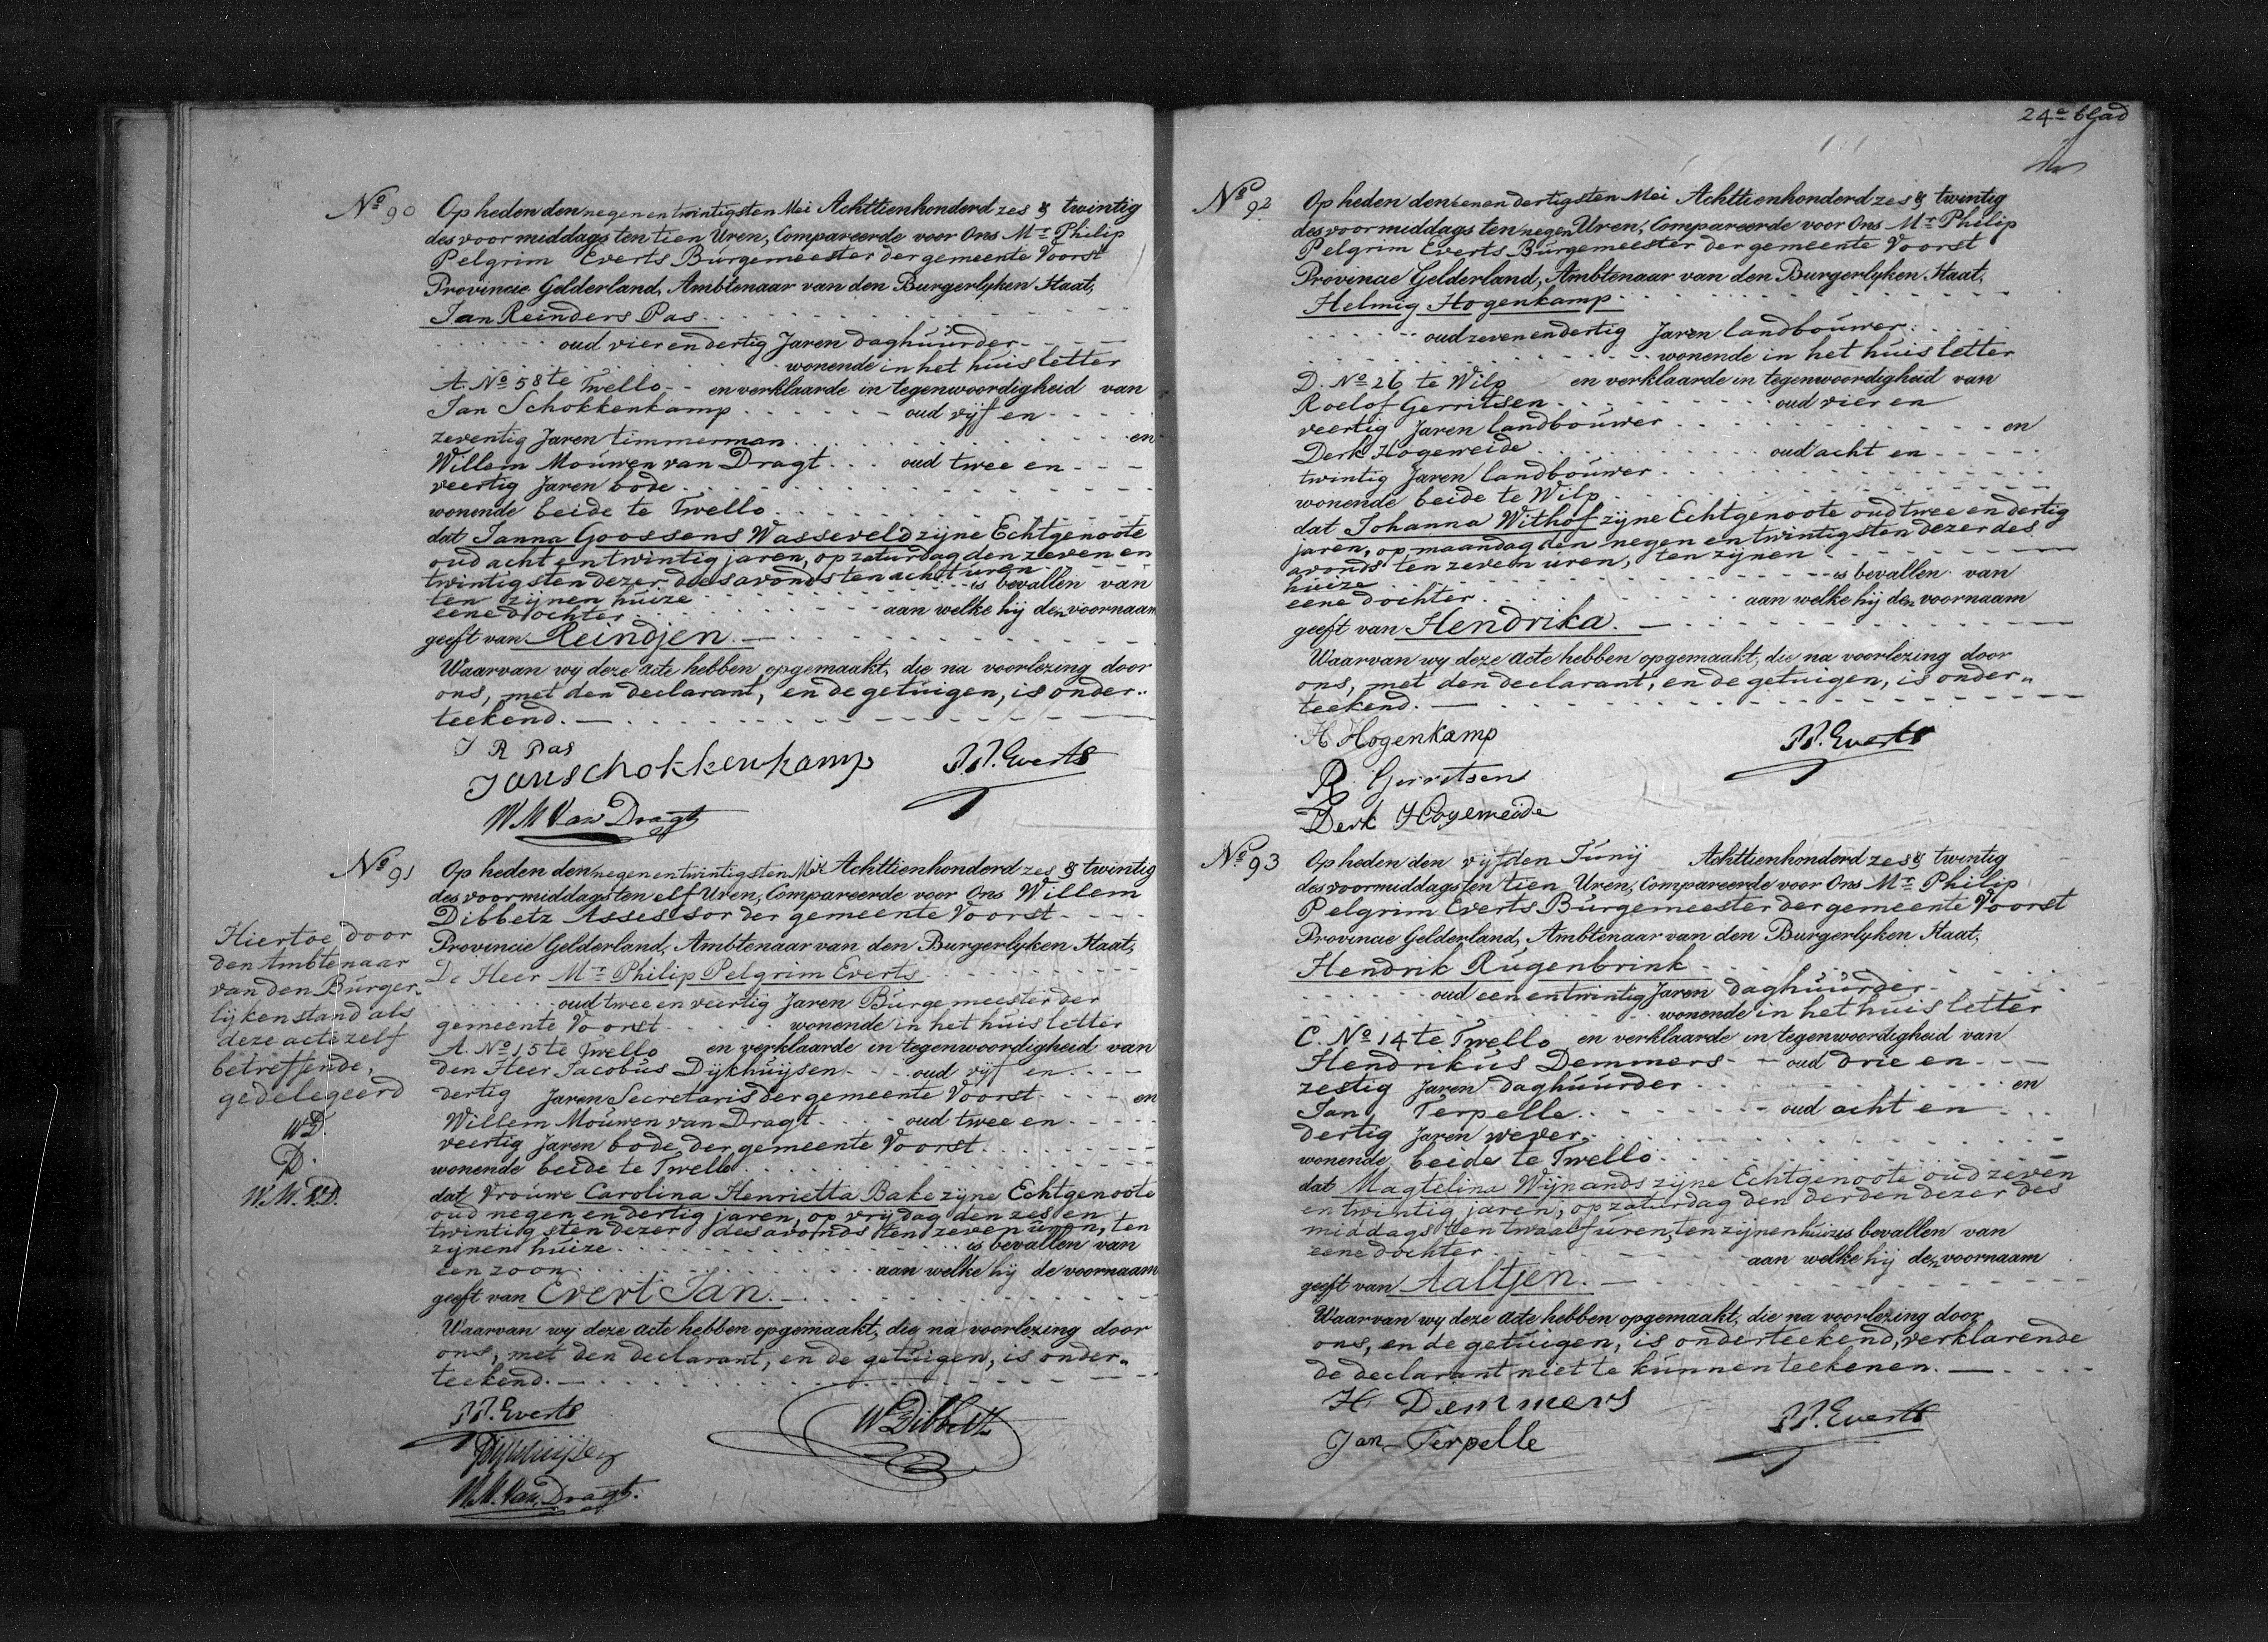 No 90
Op heden den negenentwintigsten Mei Achttienhonderd zes & twintig
des voormiddags ten tien Uren, Compareerde voor Ons Mr Philip
Pelgrim Everts Burgemeester der gemeente Voorst
Provincie Gelderland, Ambtenaar van den Burgerlyken Staat,
Jan Reinders Pas
oud vierendertig Jaren daghuurder
wonende in het huis letter
A. No 58 te Twello en verklaarde in tegenwoordigheid van
Jan Schokkenkamp oud vijf en
zeventig Jaren timmerman en
Willem Mouwen van Dragt oud twee en
veertig Jaren bode
wonende beide te Twello
dat Janna Goossens Wasseveld zijne Echtgenoote
oud acht en twintig jaren, op zaturdag den zeven en
twintigsten dezer des avonds ten acht uren
ten zijnen huize is bevallen van
eene dochter aan welke hij den voornaam
geeft van Reindjen.
Waarvan wy deze acte hebben opgemaakt, die na voorlezing door
ons, met den declarant, en de getuigen, is onder„
teekend.
J R Pas
Jan schokkenkamp P.P. Everts
W M Van Dragt
No 91
Op heden den negenentwintigsten Mei Achttienhonderd zes & twintig
des voormiddags ten elf Uren, Compareerde voor Ons Willem
Dibbetz Assessor der gemeente Voorst
Provincie Gelderland, Ambtenaar van den Burgerlyken Staat,
De Heer Mr Philip Pelgrim Everts
oud twee en veertig Jaren Burgemeester der
gemeente Voorst wonende in het huis letter
A. No 15 te Twello en verklaarde in tegenwoordigheid van
den Heer Jacobus Dijkhuijsen oud vijf en
dertig Jaren Secretaris der gemeente Voorst en
Willem Mouwen van Dragt oud twee en
veertig Jaren bode der gemeente Voorst
wonende beide te Twello
dat Vrouwe Carolina Henrietta Bake zijne Echtgenoote
oud negen en dertig jaren, op vrijdag den zes en
twintigsten dezer des avonds ten zeven uren, ten
zijnen huize is bevallen van
een zoon aan welke hij de voornaam
geeft van Evert Jan.
Waarvan wy deze acte hebben opgemaakt, die na voorlezing door
ons, met den declarant, en de getuigen, is onder„
teekend.
P.P. Everts W Dibbetz
Dijkhuijsen
W.M. Van Dragt.
Hiertoe door
den Ambtenaar
van den Burger„
lijken stand als
deze acte zelf
betreffende,
gedelegeerd
WD.
D.
W.M.v.D.
24e blad
No 92
Op heden den eenen dertigsten Mei Achttienhonderd zes & twintig
des voormiddags ten negen Uren, Compareerde voor Ons Mr Philip
Pelgrim Everts Burgemeester der gemeente Voorst
Provincie Gelderland, Ambtenaar van den Burgerlyken Staat,
Helmig Hogenkamp
oud zevenendertig Jaren landbouwer
wonende in het huis letter
D. No 26 te Wilp en verklaarde in tegenwoordigheid van
Roelof Gerritsen oud vier en
veertig Jaren landbouwer en
Derk Hogeweide oud acht en
twintig Jaren landbouwer
wonende beide te Wilp
dat Johanna Withof zijne Echtgenoote oud twee en dertig
jaren, op maandag den negen en twintigsten dezer des
avonds ten zeven uren, ten zijnen
huize is bevallen van
eene dochter aan welke hij den voornaam
geeft van Hendrika.
Waarvan wy deze acte hebben opgemaakt, die na voorlezing door
ons, met den declarant, en de getuigen, is onder„
teekend.
H Hogenkamp P.P. Everts
R Gerritsen
Derk Hogeweide
No 93
Op heden den vijfden Junij Achttienhonderd zes & twintig
des voormiddags ten tien Uren, Compareerde voor Ons Mr Philip
Pelgrim Everts Burgemeester der gemeente Voorst
Provincie Gelderland, Ambtenaar van den Burgerlyken Staat,
Hendrik Rugenbrink
oud een en twintig Jaren daghuurder
wonende in het huis letter
C. No 14 te Twello en verklaarde in tegenwoordigheid van
Hendrikus Demmers oud drie en
zestig Jaren daghuurder en
Jan Terpelle oud acht en
dertig Jaren wever
wonende beide te Twello
dat Magtelina Wijnands zijne Echtgenoote oud zeven
en twintig jaren, op zaturdag den derden dezer des
middags ten twaalf uren, ten zijnen huize is bevallen van
eene dochter aan welke hij den voornaam
geeft van Aaltjen.
Waarvan wy deze acte hebben opgemaakt, die na voorlezing door
ons, en de getuigen, is onderteekend, verklarende
de declarant niet te kunnen teekenen.
H Demmers P.P. Everts
Jan Terpelle